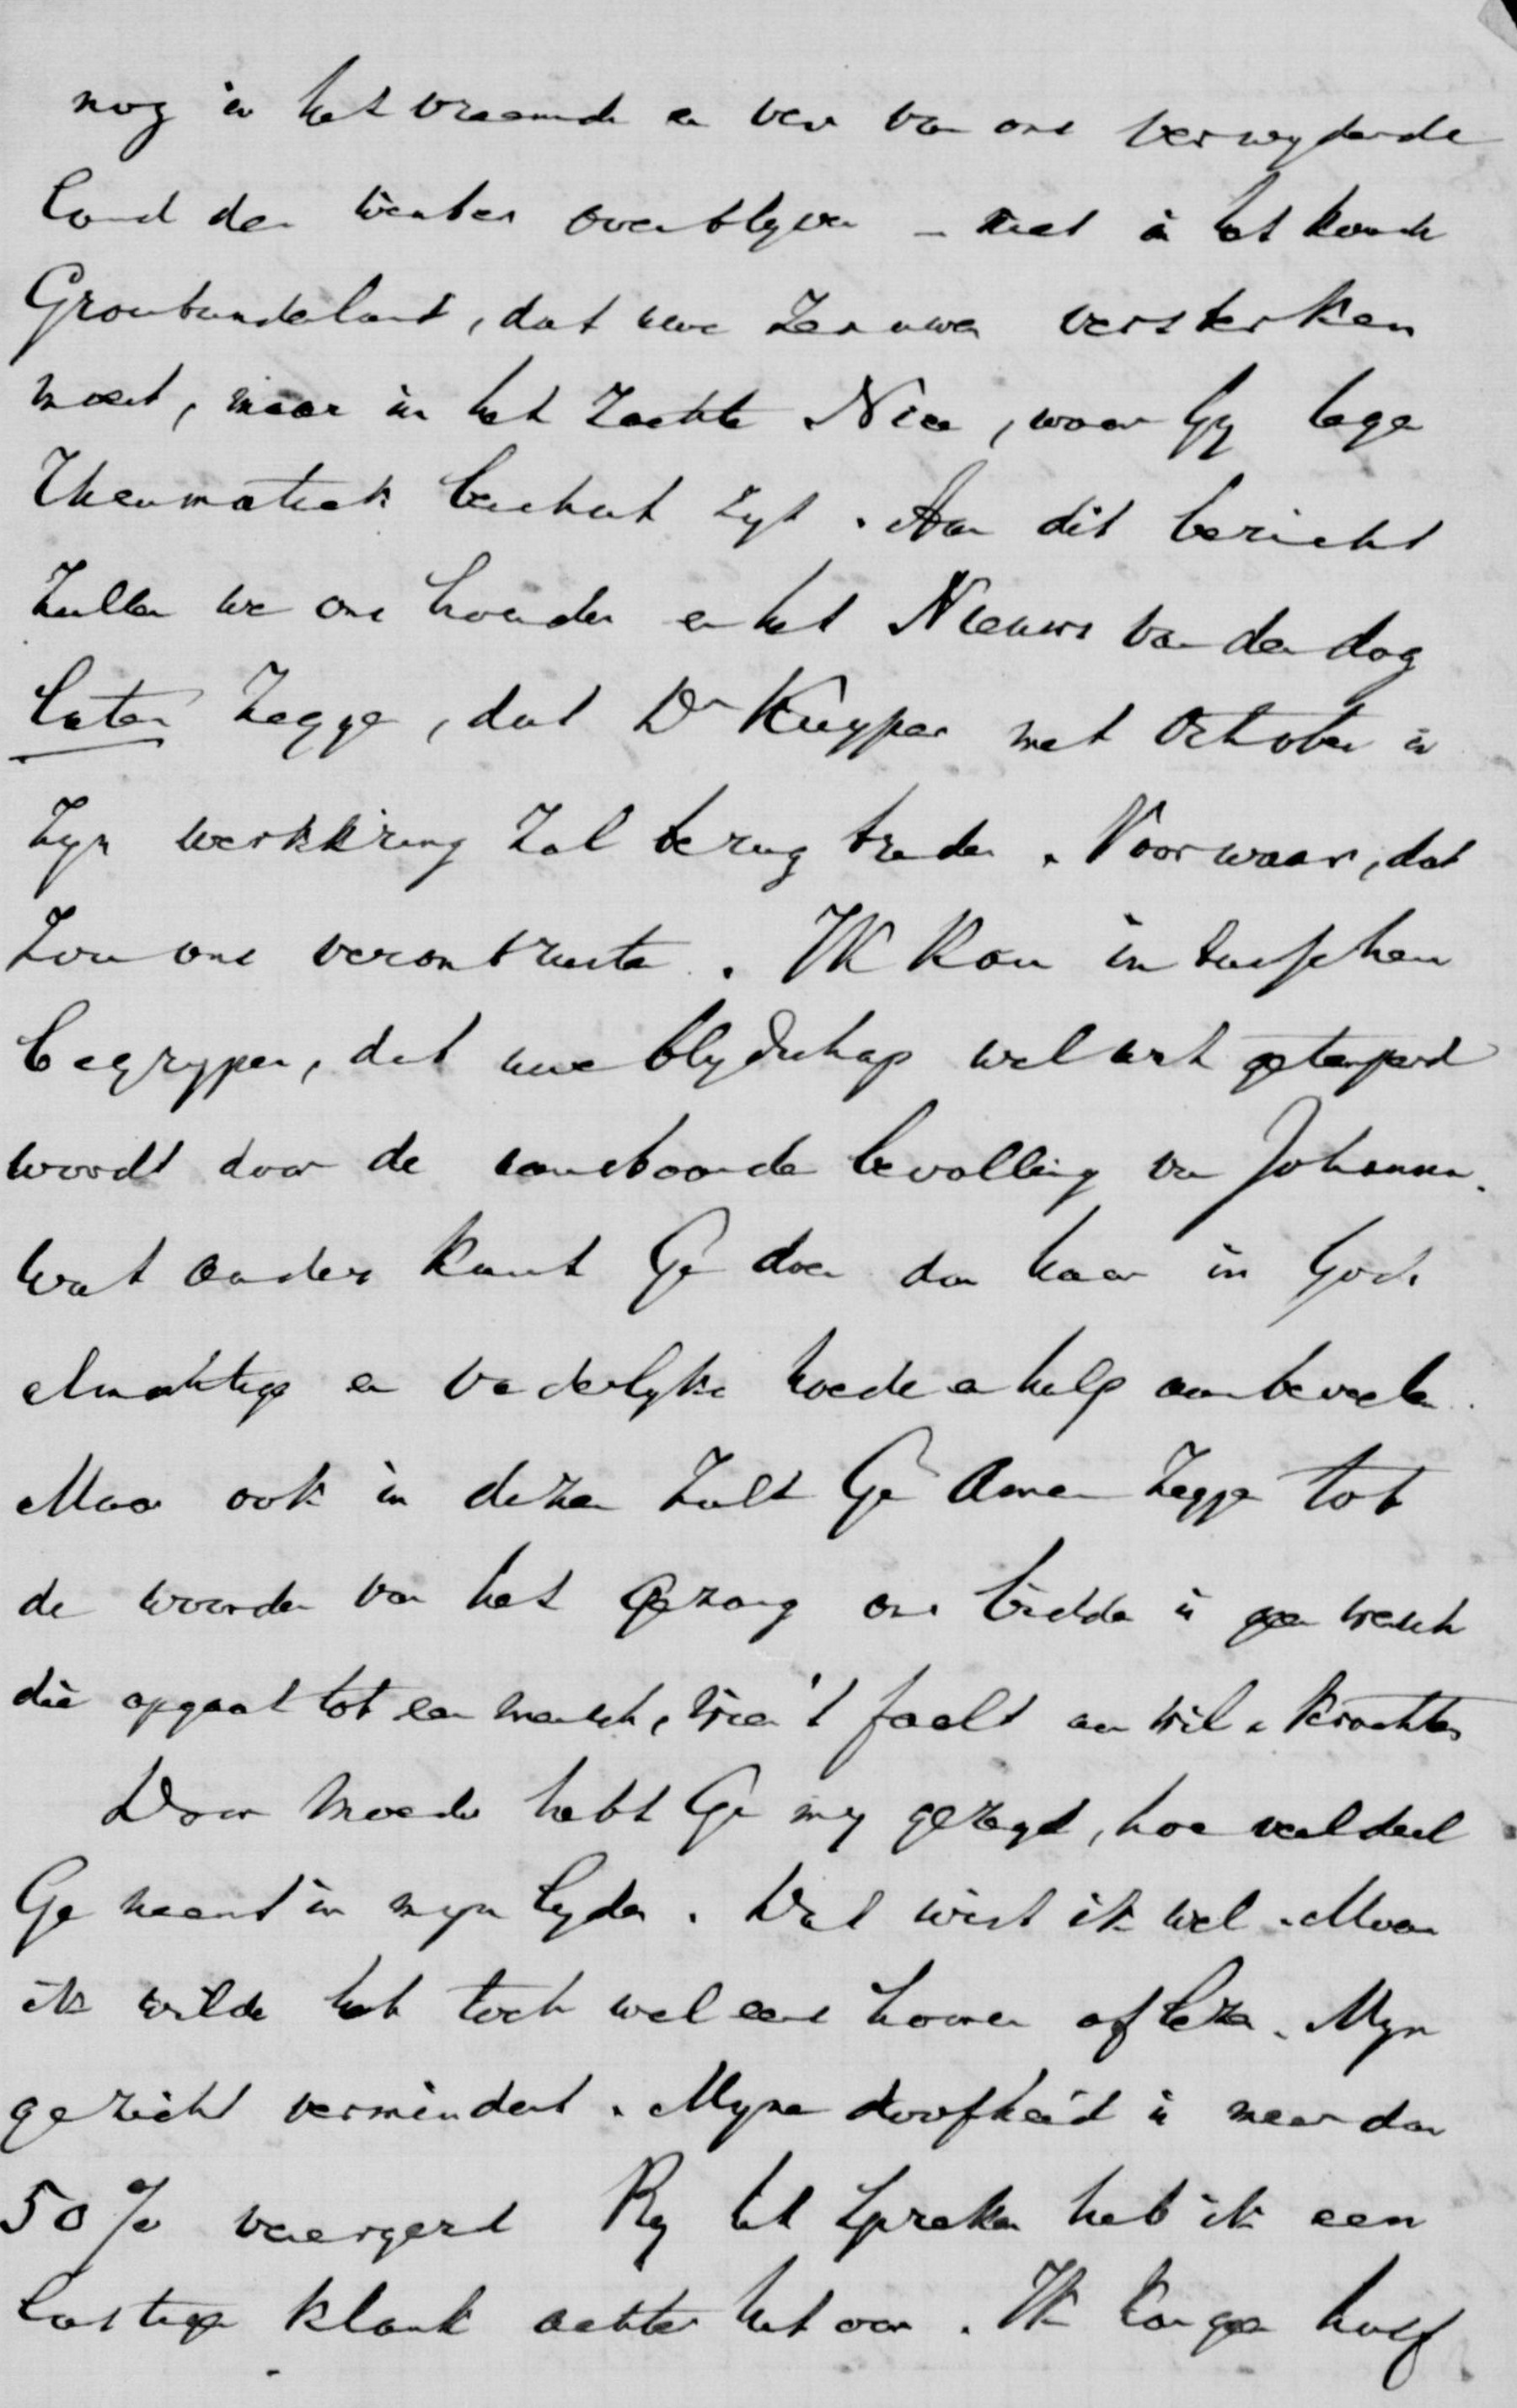 nog in het vreemde en ver van ons verwyderde
land den winter overblyven – niet in het koude
Graubunderland, dat uwe zenuwen versterken
moest, maar in het zachte Nice, waar Gy tegen
Rheumatiek beschut zyt. Aan dit bericht
zullen we ons houden en het Nieuws van den dag
laten zeggen, dat Dr Kuyper met October in
zyn werkkring zal terug treden. Voorwaar, dat
zou ons verontrusten. Ik kan intusschen
begrypen, dat uwe blydschap wel wat getemperd
wordt door de aanstaande bevalling van Johanna.
Wat anders kunt Ge doen dan haar in Gods
almachtige en vaderlyke hoede en hulp aanbevelen.
Maar ook in dezen zult Ge Amen zeggen tot
de woorden van het Gezang ons bidden is geen wensch
die opgaat tot een mensch, wien 't faalt aan wil en krachten
Door Moeder hebt Ge my gezegd, hoe veel deel
Ge neemt in myn lyden. Dat wist ik wel. Maar
ik wilde het toch wel eens hooren of lezen. Myn
gezicht vermindert. Myne doofheid is meer dan
50% verergerd By het spreken heb ik een
lastige klank achter het oor. Ik kan geen half